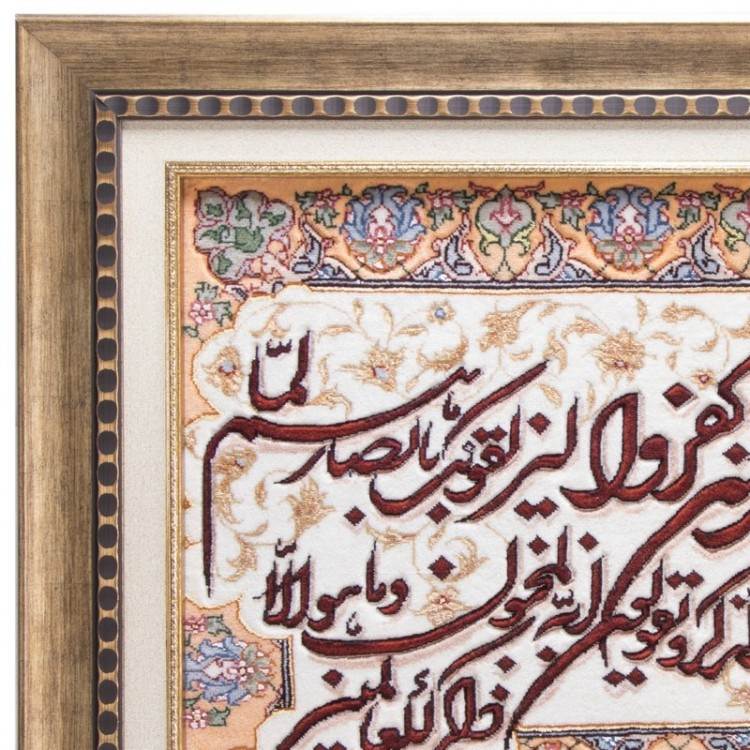 كفروا ليزلقونك بابصارهم لما
الذكر و يقولون انه لمجنون و ما هو الا
ذكر للعالمين